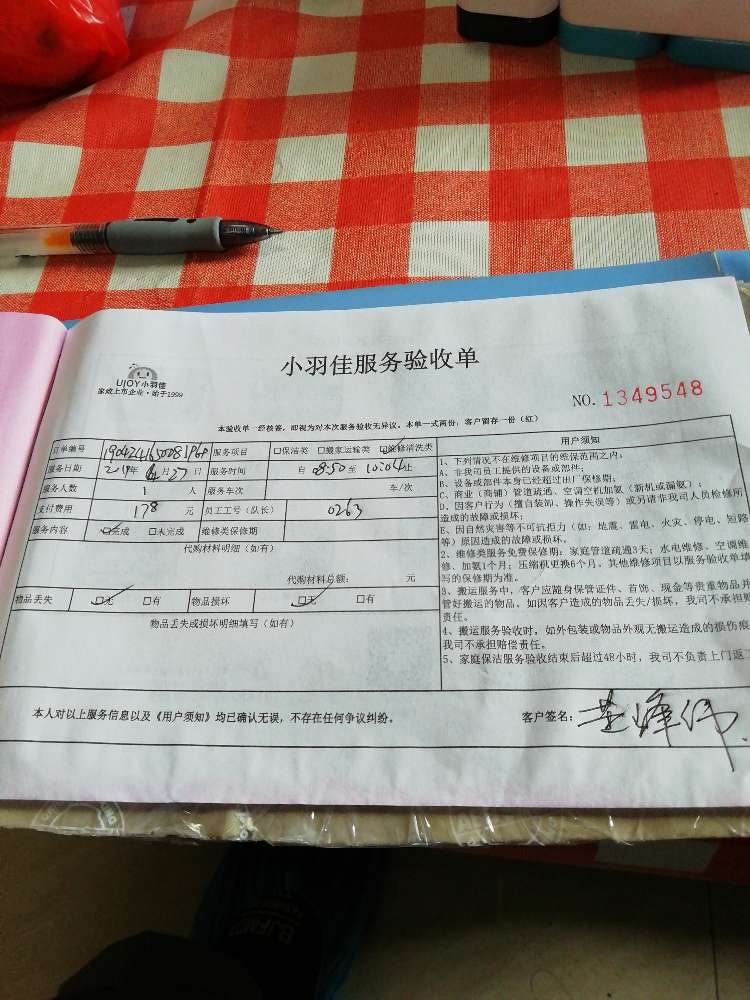 小羽佳服务验收单
UJOY小羽佳
家政上市企业·始于1999
NO. 1349548
本验收单一经核签，即视为对本次服务验收无异议。本单一式两份：客户留存一份（红）
订单编号 服务项目 □保洁类 □搬家运输类 ☑维修清洗类
服务日期 2019年 4月27日 服务时间 自 08:50 至 10:04 止
服务人数 1 人 服务车次 车/次
支付费用 178 元 员工工号（队长） 0263
服务内容 ☑完成 □未完成 维修类保修期
代购材料明细（如有）
代购材料总额： 元
物品丢失 ☑无 □有 物品损坏 ☑无 □有
物品丢失或损坏明细填写（如有）
用户须知
1、下列情况不在维修项目的维保范围之内：
A、非我司员工提供的设备或部件；
B、设备或部件本身已经超过出厂保修期；
C、商业（商铺）管道疏通、空调空机加氨（新机或漏氨）；
D、因客户行为（擅自装卸、操作失误等）或另请非我司人员检修所
造成的故障或损坏；
E、因自然灾害等不可抗力（如：地震、雷电、火灾、停电、短路
等）原因造成的故障或损坏。
2、维修类服务免费保修期：家庭管道疏通3天；水电维修、空调维
修、加氨1个月；压缩机更换6个月，其他维修项目以服务验收单填
写的保修期为准。
3、搬运服务中，客户应随身保管证件、首饰、现金等贵重物品并
管好搬运的物品。如因客户造成的物品丢失/损坏，我司不承担
责任。
4、搬运服务验收时，如外包装或物品外观无搬运造成的损伤痕
我司不承担赔偿责任。
5、家庭保洁服务验收结束后超过48小时，我司不负责上门返工
本人对以上服务信息以及《用户须知》均已确认无误，不存在任何争议纠纷。 客户签名：
BJFMDT